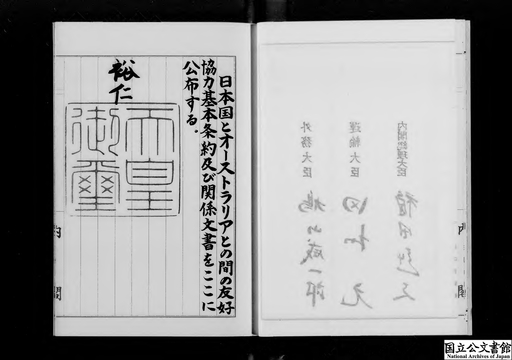 内閣総理大臣 福田赳夫
運輸大臣 田村元
外務大臣 鳩山威一郎
内閣
日本国とオーストラリアとの間の友好
協力基本条約及び関係文書をここに
公布する。
裕仁
天皇
御璽
内閣
国立公文書館
National Archives of Japan